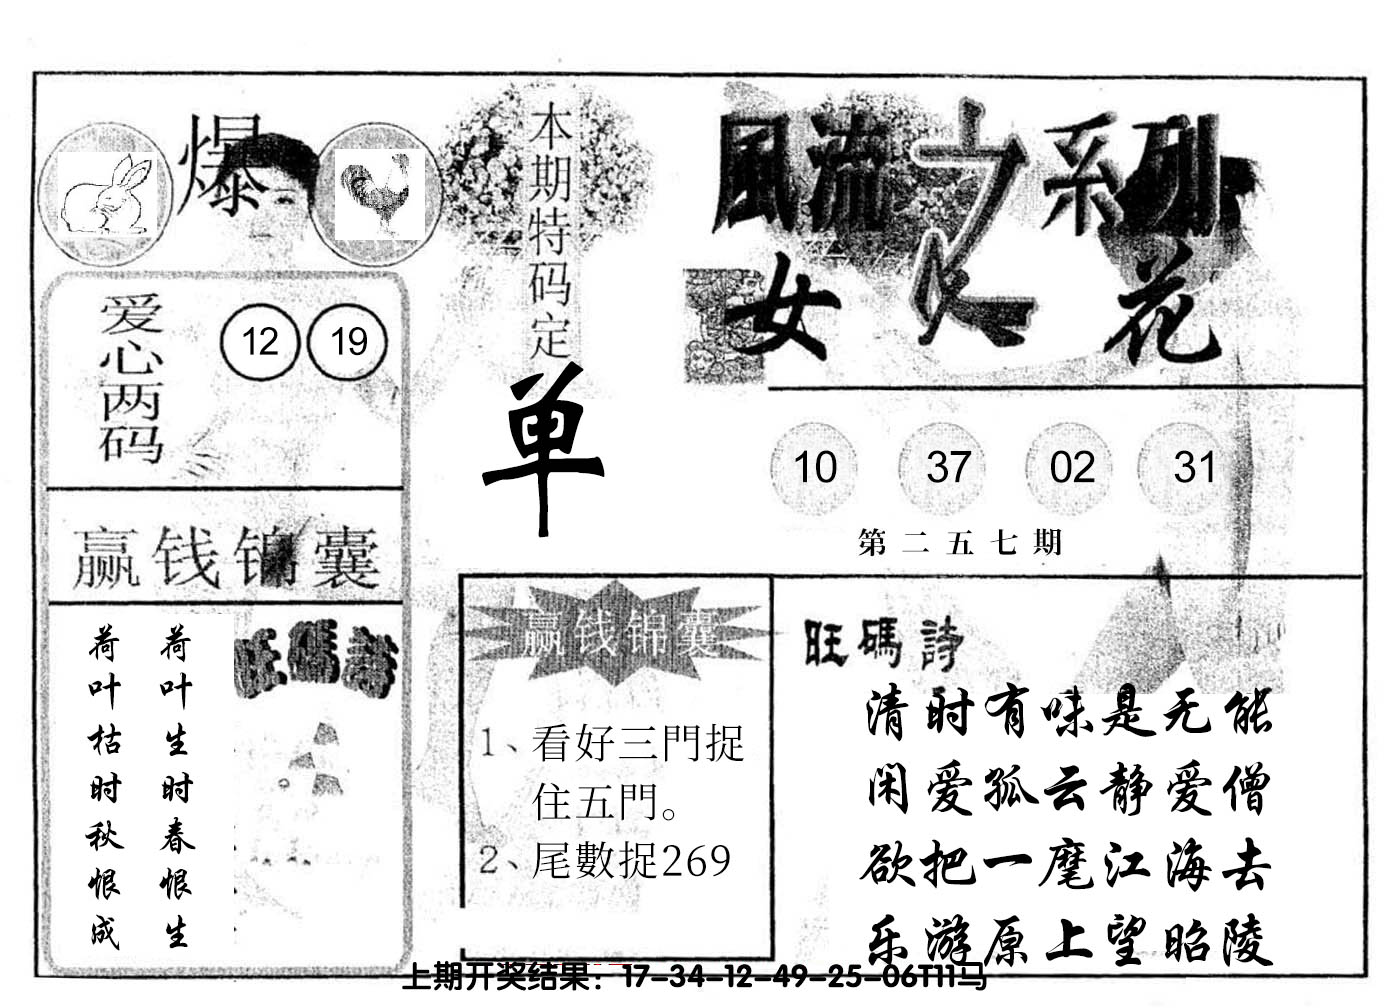 爆
本期特码定
单
風流之系列
女人花
爱心两码
12 19
10 37 02 31
第二五七期
赢钱锦囊
荷叶生时春恨生
荷叶枯时秋恨成
旺碼詩
赢钱锦囊
1、看好三門捉
住五門。
2、尾數捉269
旺碼詩
清时有味是无能
闲爱孤云静爱僧
欲把一麾江海去
乐游原上望昭陵
上期开奖结果：17-34-12-49-25-06T11马